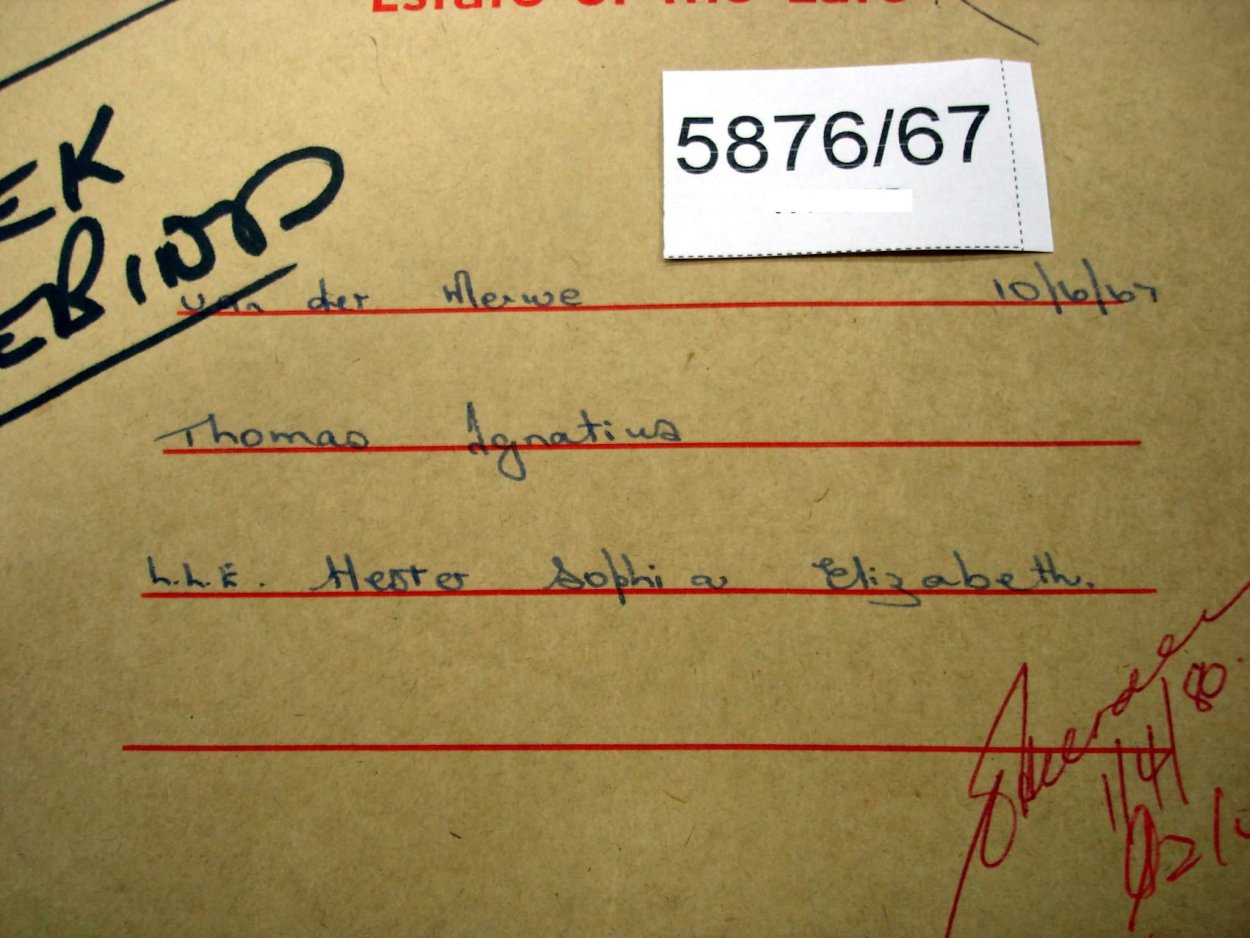 Estate of the Late
5876/67
EK
EBIND
van der Merwe 10/6/67
Thomas Ignatius
L.L.E. Hester Sophia Elizabeth.
1/4/80